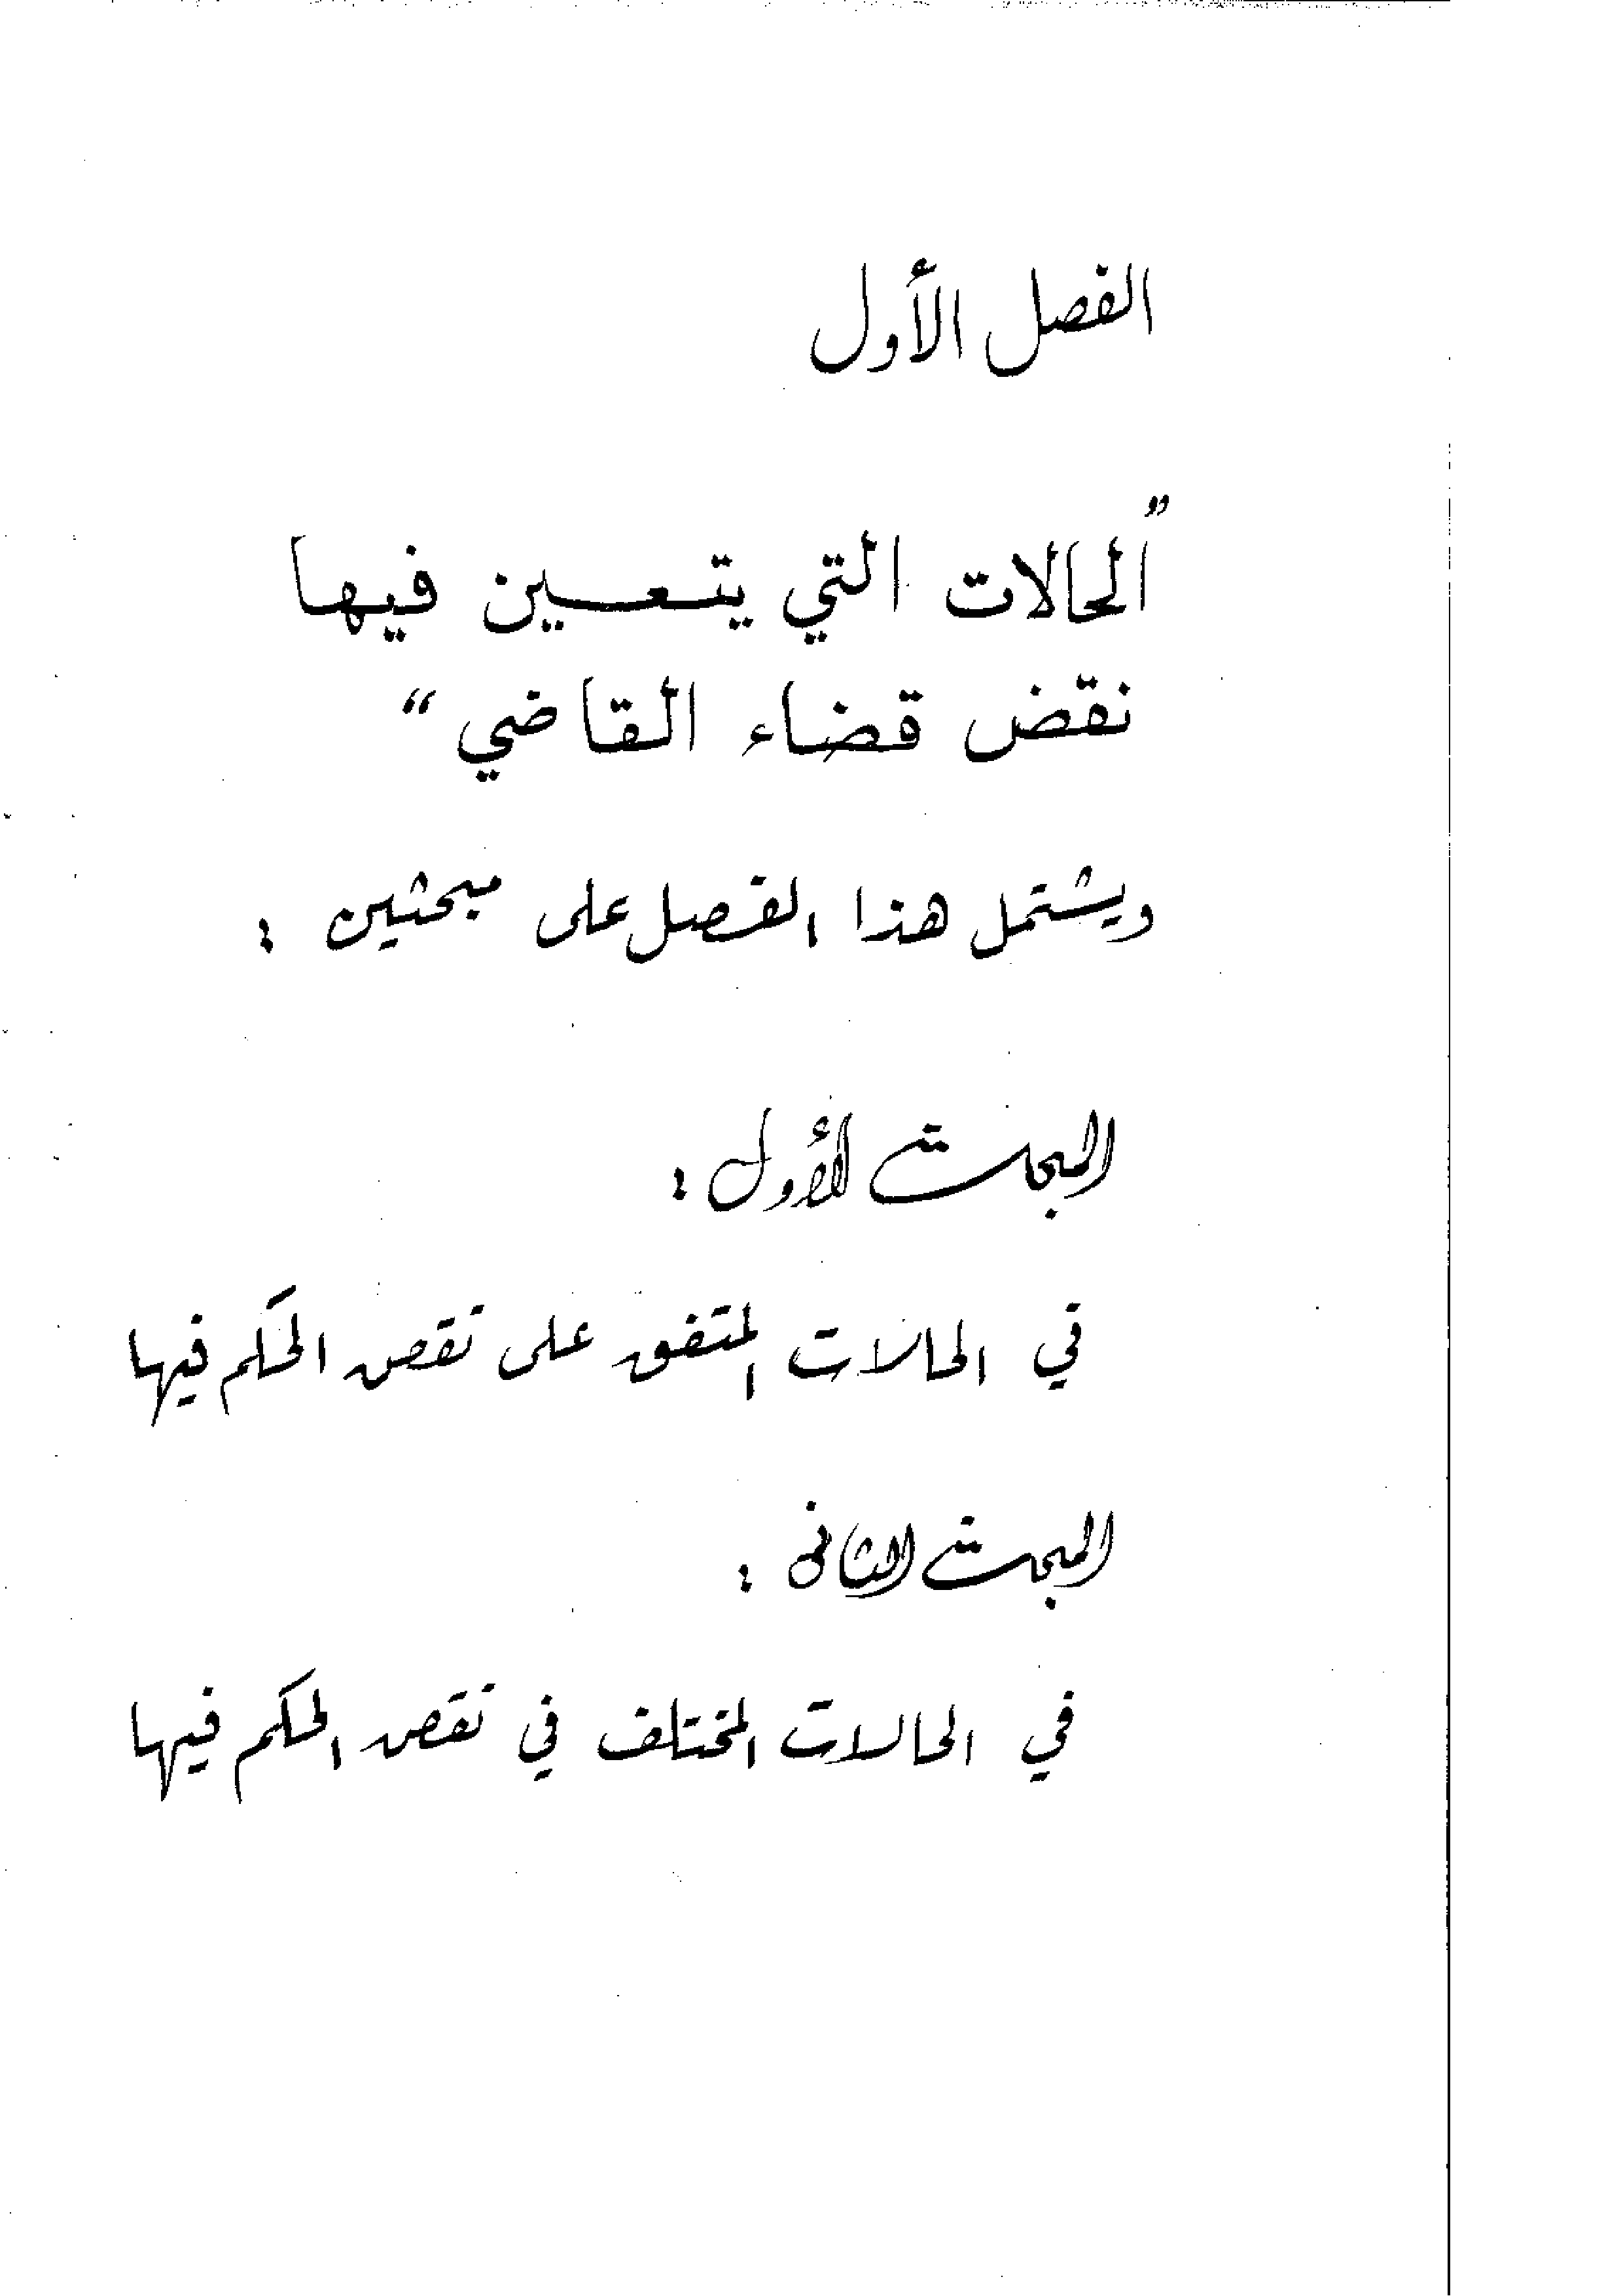 الفصل الأول
"الحالات التي يتعين فيها
نقض قضاء القاضي"
ويشتمل هذا الفصل على مبحثين :
المبحث الأول :
في الحالات المتفق على نقض الحكم فيها
المبحث الثاني :
في الحالات المختلف في نقض الحكم فيها